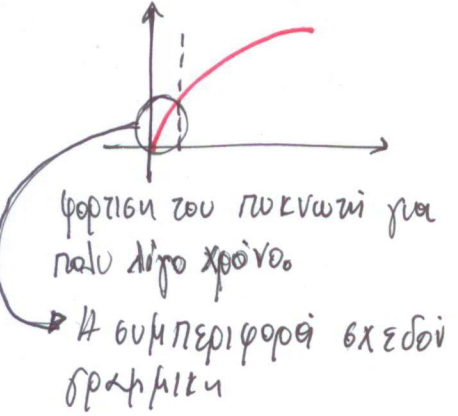 φορτιση του πυκνωτή για
πολυ λίγο χρόνο.
Η συμπεριφορά σχεδόν
γραμμικη